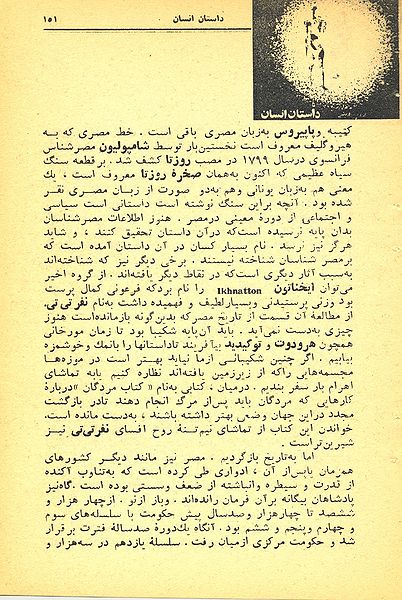 داستان انسان
۱۵۱
داستان انسان
کتیبه و پاپیروس به‌زبان مصری باقی است . خط مصری که به
هیروگلیف معروف است نخستین‌بار توسط شامپولیون مصرشناس
فرانسوی درسال ۱۷۹۹ در مصب روزتا کشف شد . بر قطعه سنگ
سیاه عظیمی که اکنون به‌همان صخرهٔ روزتا معروف است ، یك
معنی هم به‌زبان یونانی وهم به‌دو صورت از زبان مصری نقر
شده بود . آنچه براین سنگ نوشته است داستانی است سیاسی
و اجتماعی از دورهٔ معینی درمصر . هنوز اطلاعات مصرشناسان
بدان پایه نرسیده است‌که درآن داستان تحقیق کنند ، و شاید
هرگز نیز نرسد . نام بسیار کسان در آن داستان آمده است که
برمصر شناسان شناخته نیستند . برخی دیگر نیز که شناخته‌اند
به‌سبب آثار دیگری است‌که در نقاط دیگر یافته‌اند . از گروه اخیر
می‌توان ایخناتون Ikhnatton را نام بردکه فرعونی کمال پرست
بود وزنی پرستیدنی وبسیارلطیف و فهمیده داشت به‌نام نفرتی‌تی.
از مطالعهٔ آن قسمت از تاریخ مصرکه بدین‌گونه بازمانده‌است هنوز
چیزی به‌دست نمی‌آید . باید آن‌پایه شکیبا بود تا زمان مورخانی
همچون هرودوت و توکیدید بیآفریند تاداستانها را بانمك وخوشمزه
بیابیم . اگر چنین شکیبائی ازما نیاید بهتر است در موزه‌ها
مجسمه‌هایی راکه از زیرزمین یافته‌اند نظاره کنیم یابه تماشای
اهرام بار سفر بندیم . درمیان ، کتابی به‌نام « کتاب مردگان »دربارهٔ
کارهایی که مردگان باید پس‌از مرگ انجام دهند تادر بازگشت
مجدد دراین جهان وضعی بهتر داشته باشند ، به‌دست مانده است.
خواندن این کتاب از تماشای نیم‌تنهٔ روح افسای نفرتی‌تی نیز
شیرین‌تر است .
اما به‌تاریخ بازگردیم . مصر نیز مانند دیگر کشورهای
همزمان پاپس‌از آن ، ادواری طی کرده است که به‌تناوب آکنده
از قدرت و سیطره وانباشته از ضعف وسستی بوده است .گاه‌نیز
پادشاهان بیگانه برآن فرمان رانده‌اند . وباز ازنو . ازچهار هزار و
ششصد تا چهارهزار وصدسال پیش حکومت با سلسله‌های سوم
و چهارم وپنجم و ششم بود . آنگاه یك‌دورهٔ صدسالهٔ فترت برقرار
شد و حکومت مرکزی ازمیان رفت . سلسلهٔ یازدهم در سه‌هزار و